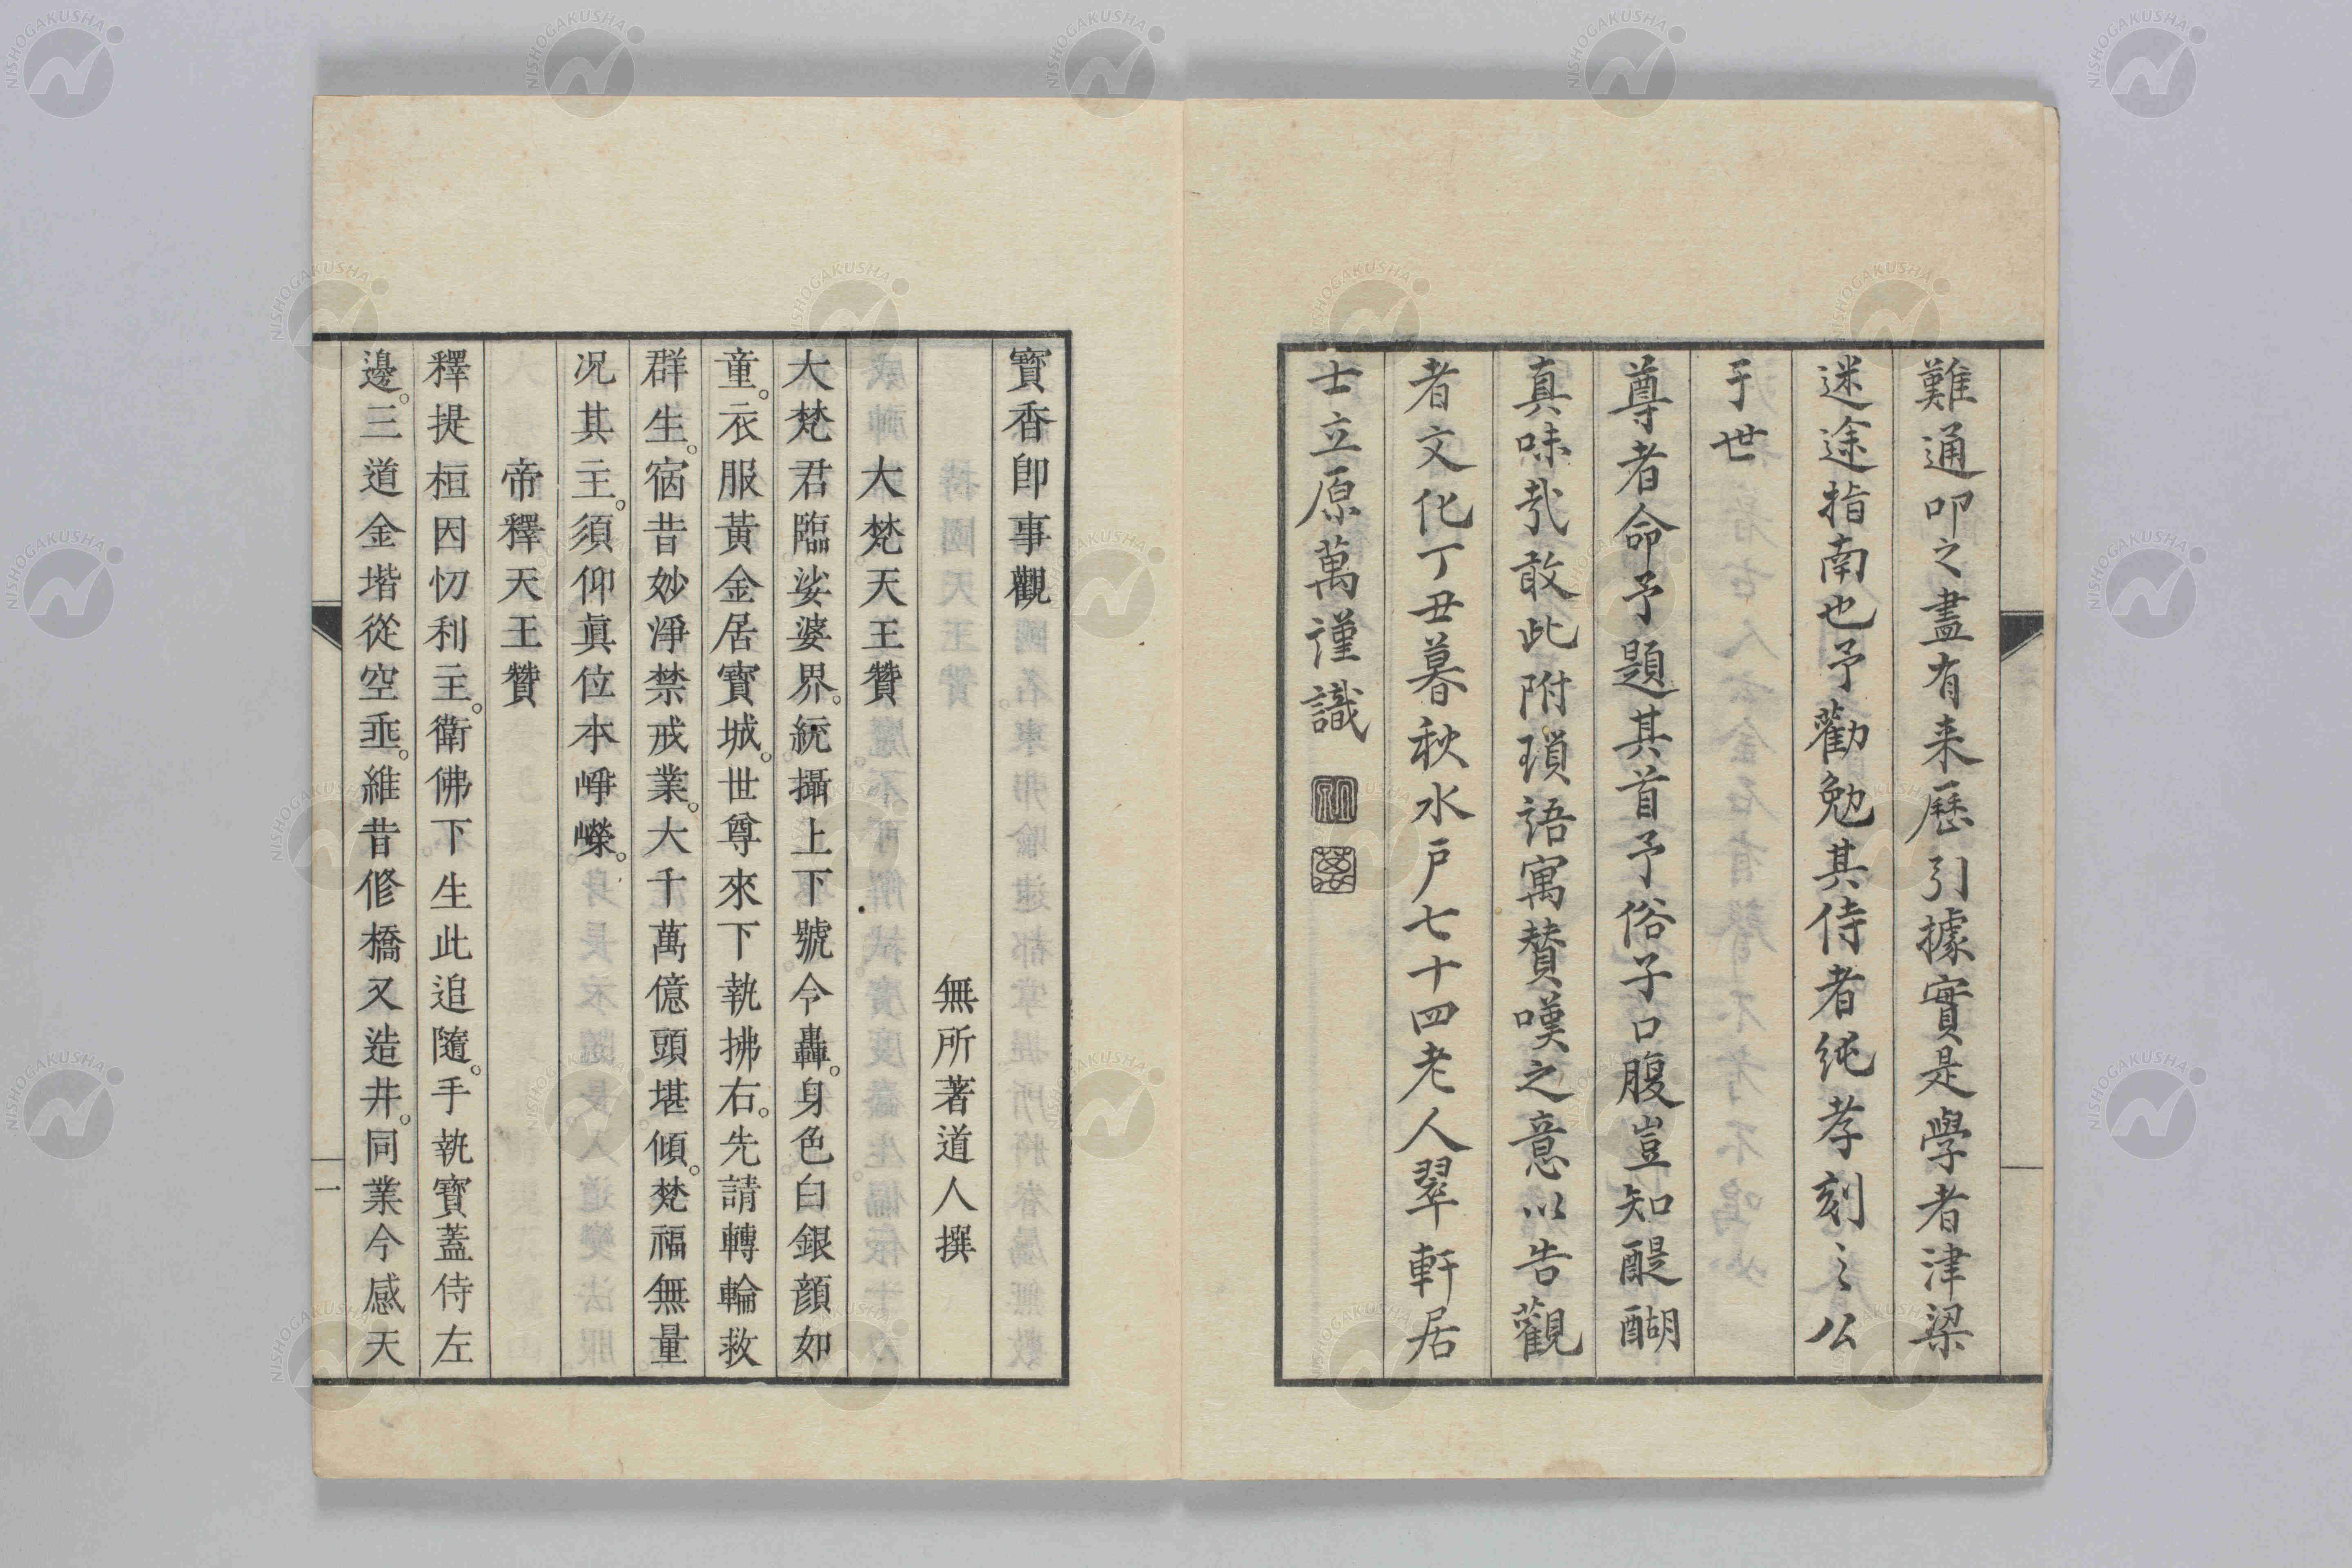 難通叩之盡有来歷引據實是學者津梁
迷途指南也予勸勉其侍者純孝刻之公
于世
尊者命予題其首予俗子口腹豈知醍醐
真味哉敢此附瑣語寓賛嘆之意以告觀
者文化丁丑暮秋水戶七十四老人翠軒居
士立原萬謹識
寶香卽事觀
無所著道人撰
大梵天王贊
大梵君臨娑婆界。統攝上下號令轟。身色白銀顔如
童。衣服黃金居寶城。世尊來下執拂右。先請轉輪救
群生。宿昔妙淨禁戒業。大千萬億頭堪傾。梵福無量
况其主。須仰眞位本崢嶸。
帝釋天王贊
釋提桓因忉利主。衛佛下生此追隨。手執寶蓋侍左
邊。三道金堦從空垂。維昔修橋又造井。同業今感天
一
NISHOGAKUSHA